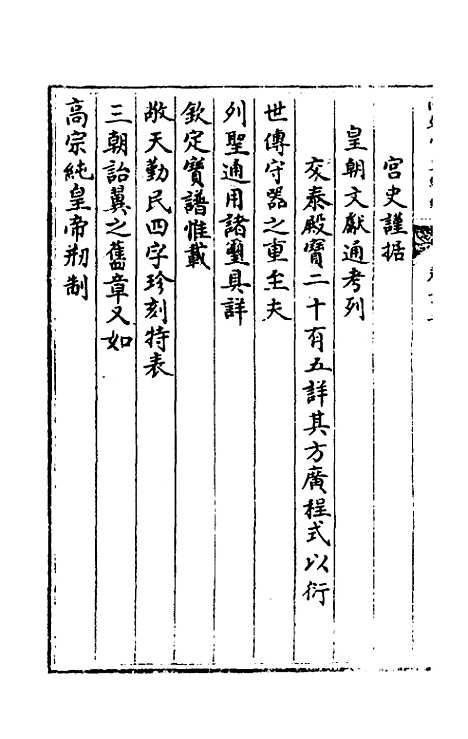 宮史謹据
皇朝文獻通考列
交泰殿寶二十有五詳其方廣程式以衍
世傳守器之重至夫
列聖通用諸璽具詳
欽定寶譜惟載
敬天勤民四字珍刻特表
三朝詒翼之舊章又如
高宗純皇帝剏制